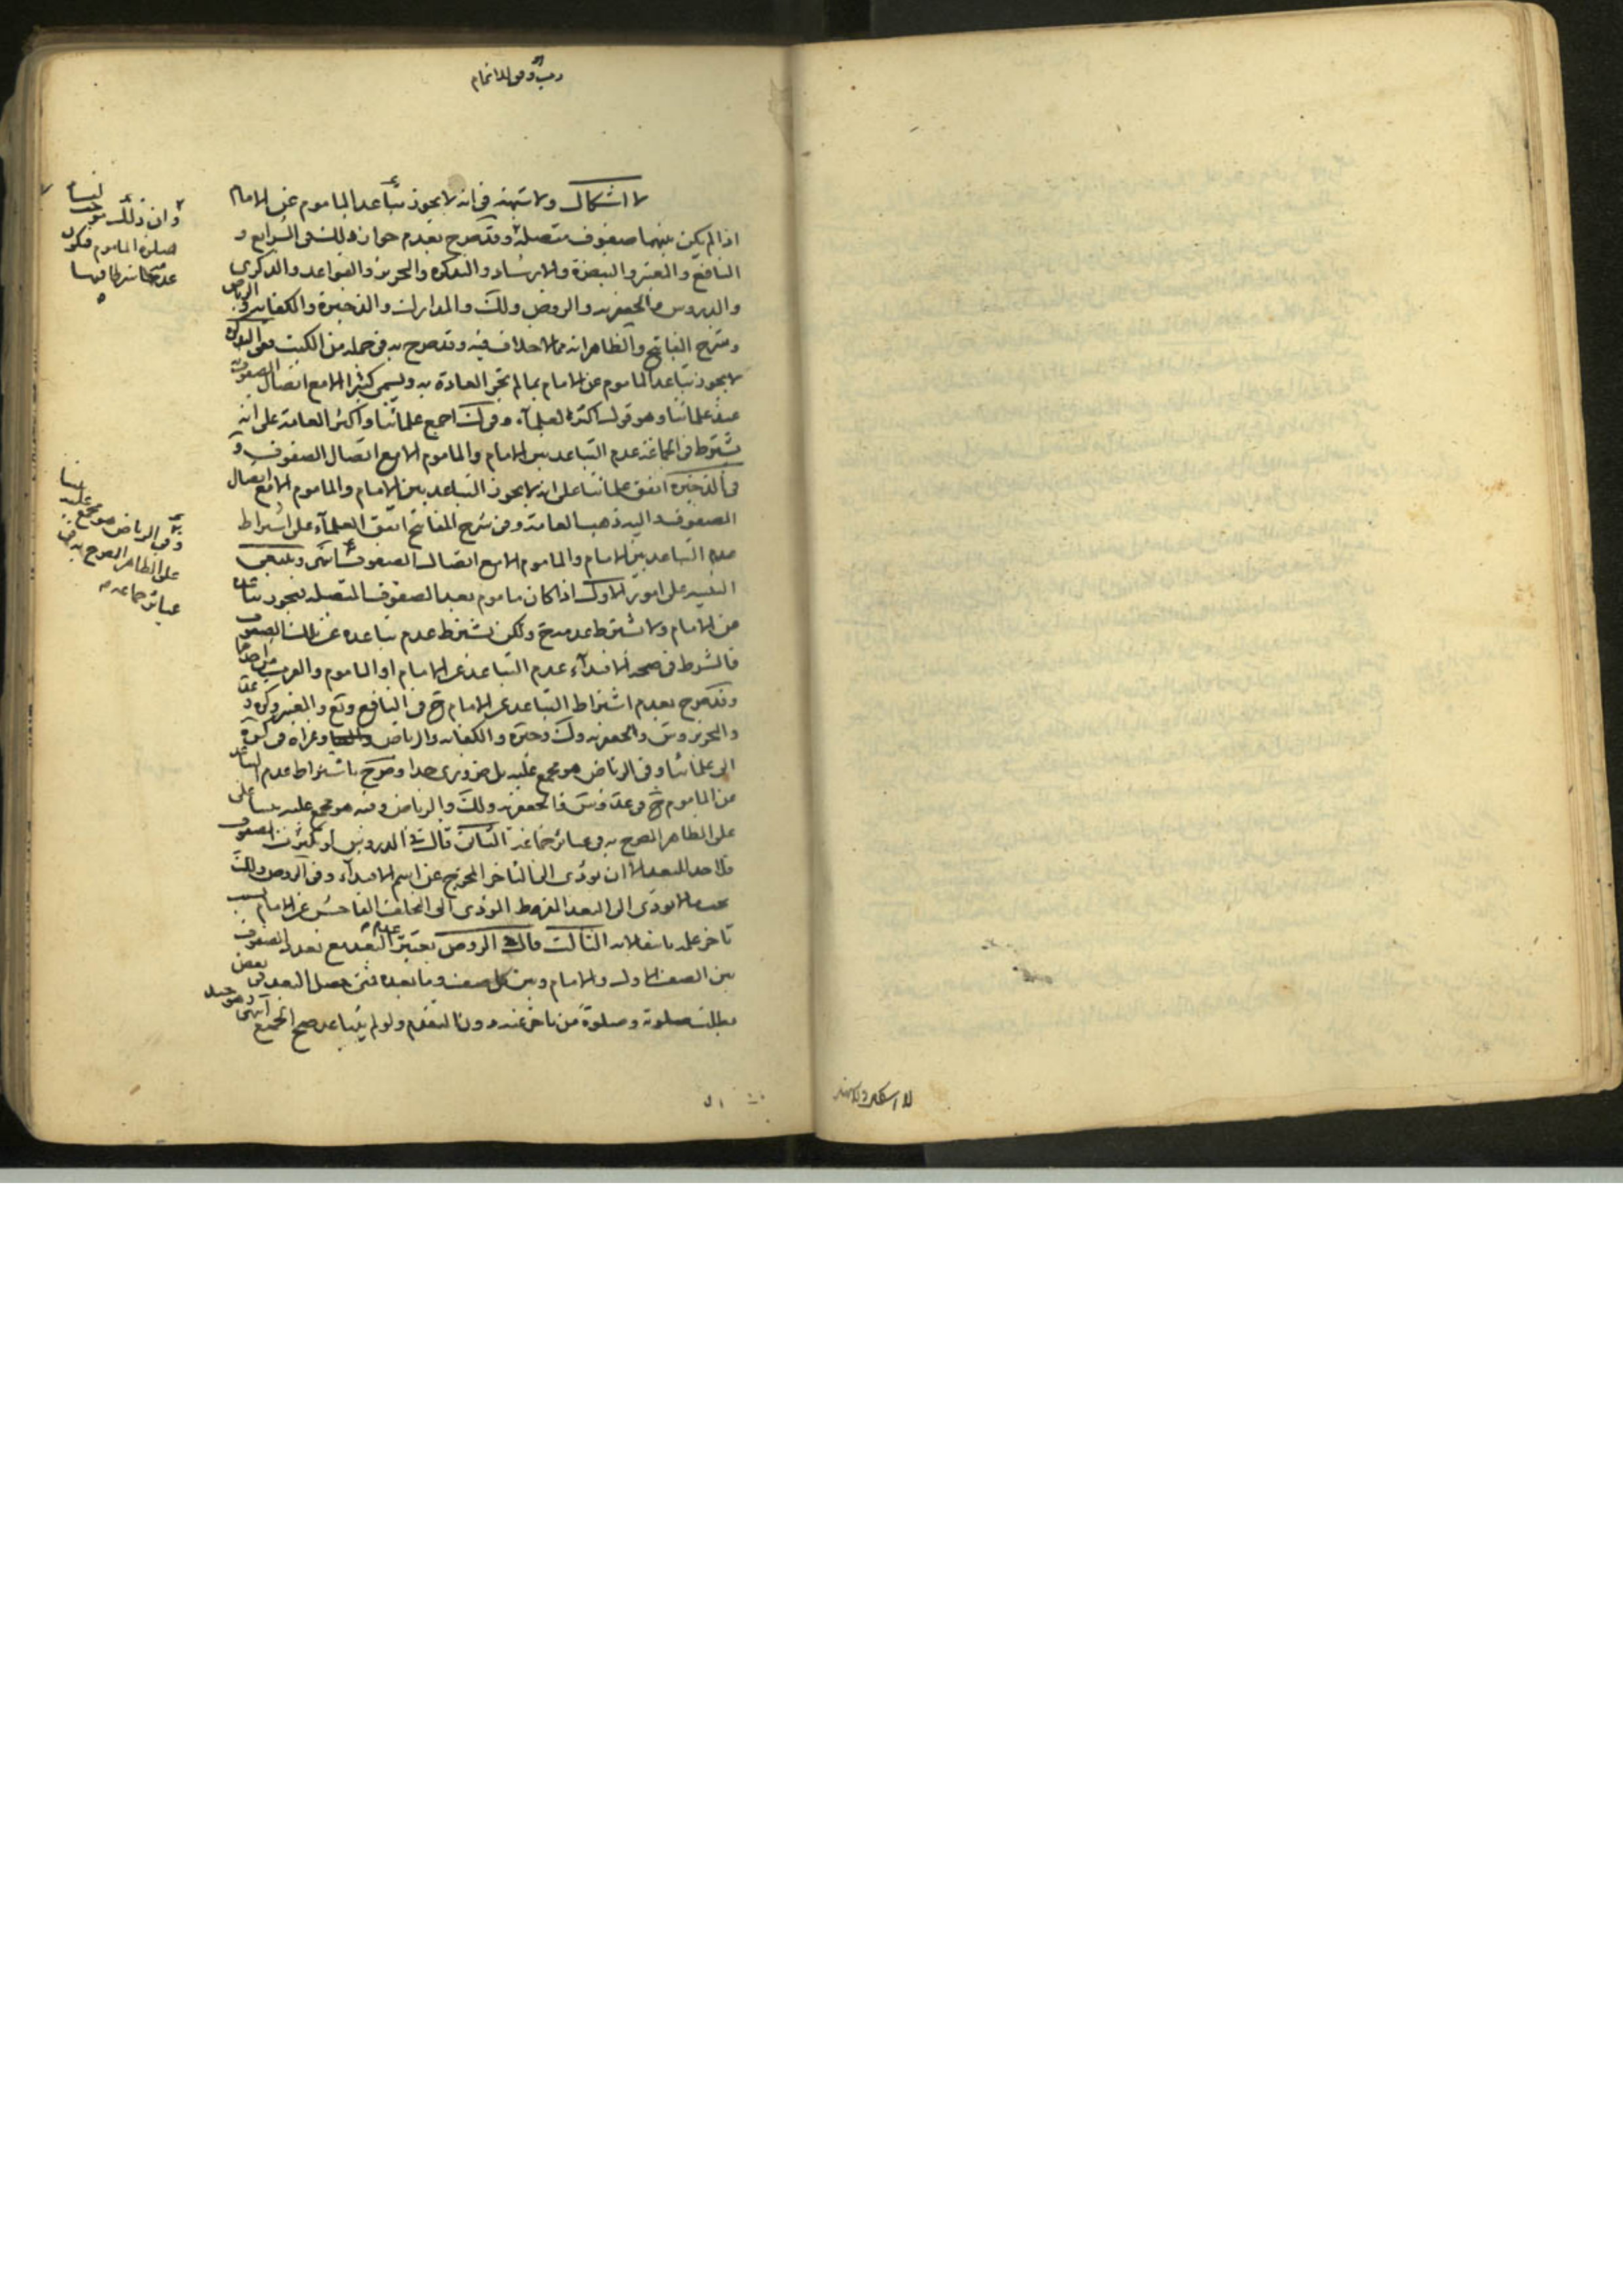 رب وفق للاتمام
لا اشكال ولا شبهة فى انه لا يجوز تباعد الماموم عن الامام
اذا لم يكن بينهما صفوف متصلة وقد صرح بعدم جواز ذلك فى الشرايع و
النافع والمعتبر والتبصرة والارشاد والتذكرة والتحرير والقواعد والذكرى
والدروس والجعفريه والروض ولك والمدارك والذخيرة والكفاية والرياض
وشرح المفاتيح والظاهر انه مما لا خلاف فيه وقد صرح به فى جملة من الكتب ففى التذكرة
لا يجوز تباعد الماموم عن الامام بما لم تجر العادة به ويسمى كثيرا الا مع اتصال الصفوف به
عند علمائنا وهو قول اكثر العلماء وفى لك اجمع علمائنا واكثر العامة على انه
يشترط فى الجماعة عدم التباعد بين الامام والماموم الا مع اتصال الصفوف و
فى الذخيرة اتفق علمائنا على انه لا يجوز التباعد بين الامام والماموم الا مع اتصال
الصفوف واليه ذهب العامة وفى شرح المفاتيح اتفق العلماء على اشتراط
عدم التباعد بين الامام والماموم الا مع اتصال الصفوف انتهى وينبغى
التنبيه على امور الاول اذا كان ماموم بعد الصفوف المتصله فيجوز تباعده
عن الامام ولا يشترط عدمه ح ولكن يشترط عدم تباعده عن تلك الصفوف
فالشرط فى صحة الاقتداء عدم التباعد عن الامام او الماموم والقرب من احدهما
وقد صرح بعدم اشتراط التباعد عن الامام ح فى النافع ويع والمعتبر وكره وعد
والتحرير وس والجعفريه ولك وخيره والكفاية والرياض وعزاه فى كره
الى علمائنا وفى الرياض هو مجمع عليه بل ضرورى جدا وصرح باشتراط عدم التباعد
عن الماموم ح فى عد وس والجعفريه ولك والرياض وفيه هو مجمع عليه بيننا على
على الظاهر المصرح به فى عبائر جماعة الثانى قال فى الدروس لو تكثرت الصفوف
فلا حد للبعد الا ان يؤدى الى التاخر المخرج عن اسم الاقتداء وفى الروض ولك
بحيث لا يؤدى الى البعد المفرط المؤدى الى التخلف الفاحش عن الامام بسبب
تاخر علمه بانتقالاته الثالث قال فى الروض يعتبر عدم البعد مع تعدد الصفوف
بين الصف الاول والامام وبين كل صف وما بعده فمتى حصل البعد فى بعض
بطلت صلوته وصلوة من تاخر عنه دون المتقدم ولو لم يتباعد صح الجميع انتهى وهو جيد
وان ذلك موجب لفساد
صلوة الماموم فيكون
عدمه شرطا فيها
وفى الرياض هو مجمع عليه بيننا
على الظاهر المصرح به فى
عبائر جماعه
لا اشكال ولا شبهه